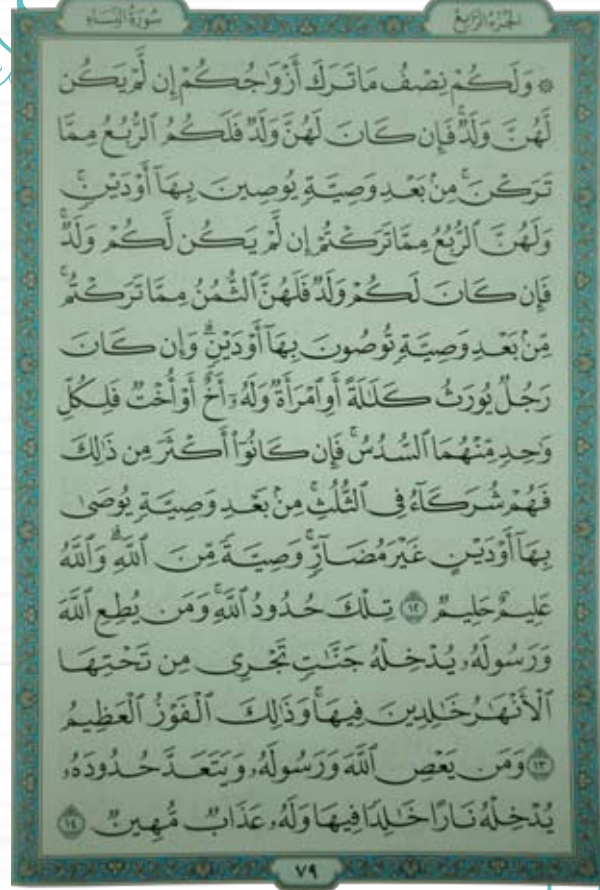 سُورَةُ النِّسَاءِ
الجُزْءُ الرَّابِعُ
۞ وَلَكُمْ نِصْفُ مَا تَرَكَ أَزْوَٰجُكُمْ إِن لَّمْ يَكُن
لَّهُنَّ وَلَدٌ ۚ فَإِن كَانَ لَهُنَّ وَلَدٌ فَلَكُمُ ٱلرُّبُعُ مِمَّا
تَرَكْنَ ۚ مِنۢ بَعْدِ وَصِيَّةٍ يُوصِينَ بِهَآ أَوْ دَيْنٍ ۚ
وَلَهُنَّ ٱلرُّبُعُ مِمَّا تَرَكْتُمْ إِن لَّمْ يَكُن لَّكُمْ وَلَدٌ ۚ
فَإِن كَانَ لَكُمْ وَلَدٌ فَلَهُنَّ ٱلثُّمُنُ مِمَّا تَرَكْتُم ۚ
مِّنۢ بَعْدِ وَصِيَّةٍ تُوصُونَ بِهَآ أَوْ دَيْنٍ ۗ وَإِن كَانَ
رَجُلٌ يُورَثُ كَلَٰلَةً أَوِ ٱمْرَأَةٌ وَلَهُۥٓ أَخٌ أَوْ أُخْتٌ فَلِكُلِّ
وَٰحِدٍ مِّنْهُمَا ٱلسُّدُسُ ۚ فَإِن كَانُوٓا۟ أَكْثَرَ مِن ذَٰلِكَ
فَهُمْ شُرَكَآءُ فِى ٱلثُّلُثِ ۚ مِنۢ بَعْدِ وَصِيَّةٍ يُوصَىٰ
بِهَآ أَوْ دَيْنٍ غَيْرَ مُضَآرٍّ ۚ وَصِيَّةً مِّنَ ٱللَّهِ ۗ وَٱللَّهُ
عَلِيمٌ حَلِيمٌ ١٢ تِلْكَ حُدُودُ ٱللَّهِ ۚ وَمَن يُطِعِ ٱللَّهَ
وَرَسُولَهُۥ يُدْخِلْهُ جَنَّٰتٍ تَجْرِى مِن تَحْتِهَا
ٱلْأَنْهَٰرُ خَٰلِدِينَ فِيهَا ۚ وَذَٰلِكَ ٱلْفَوْزُ ٱلْعَظِيمُ
١٣ وَمَن يَعْصِ ٱللَّهَ وَرَسُولَهُۥ وَيَتَعَدَّ حُدُودَهُۥ
يُدْخِلْهُ نَارًا خَٰلِدًا فِيهَا وَلَهُۥ عَذَابٌ مُّهِينٌ ١٤
٧٩